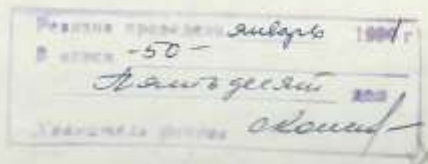 Ревизия проведена январь 1991 г
В описи -50-
Пятьдесят дел
Хранитель фондов